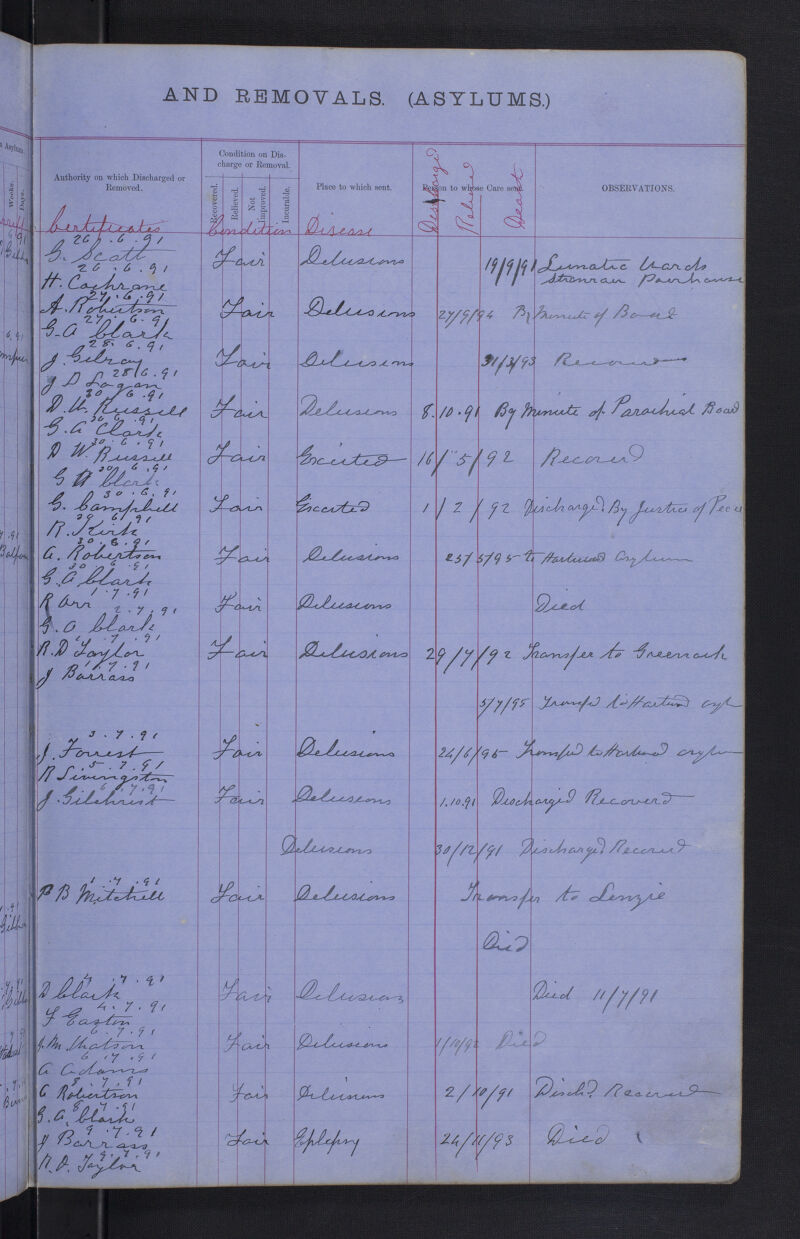 AND REMOVALS. (ASYLUMS.)
Authority on which Discharged or Removed.
Condition on Discharge or Removal.
Recovered. Relieved. Not Improved. Incurable.
Place to which sent.
Person to whose Care sent.
OBSERVATIONS.
Weeks. Days.
Certificates Condition Disease Discharged Relieved Death
26.6.91
G. Scott Fair Delusions 19/9/91 Lunatic Wards
26.6.91 Stranraer Poorhouse
H. Cochrane
27.6.91
A. Robertson Fair Delusions 27/9/94 By Minute of Board
27.6.91
G. A Clark
28.6.91
J. Gilray Fair Delusions 31/3/93 Recovered
28.6.91
J D Logan
30.6.91
D. W. Russell Fair Delusions 8.10.91 By Minute of Parochial Board
30.6.91
G. A. Clark
30.6.91
D W. Russell Fair Excited 16/5/92 Recovered
30.6.91
G A Clark
30.6.91
G. Campbell Fair Excited 1/2/92 Discharged By Justice of Peace
29.6.91
R. Kirk
30.6.91
A. Robertson Fair Delusions 25/5/95 to Hartwood Asylum
30.6.91
G. A Clark
1.7.91
R Orr Fair Delusions Died
2.7.91
G. A Clark
1.7.91
R. D Taylor Fair Delusions 29/7/92 Transfer to Greenock
1.7.91
J Barrass
5/7/95 Transfd to Hartwd asyl
3.7.91
J. Forrest Fair Delusions 24/6/95 Transfd to Hartwood asylum
5.7.91
R Livingston
6.7.91
J. Gilchrist Fair Delusions 1.10.91 Discharged Recovered
Delusions 30/12/91 Discharged Recovered
1.7.91
P B Mitchell Fair Delusions Transfer to Lenzie
Died
4.7.91
D Clark Fair Delusions Died 11/7/91
4.7.91
F Easton
6.7.91
J. M. Watson Fair Delusions 1/10/92 Died
6.7.91
A Adams
8.7.91
A Robertson Fair Delusions 2/10/91 Dischd Recovered
8.7.91
G. A. Clark
9.7.91
J Barrass Fair Eplepsy 24/11/93 Died
9.7.91
R. D. Taylor